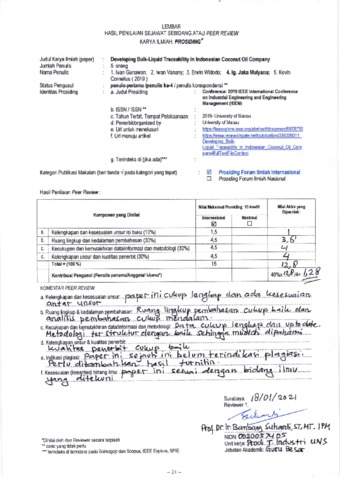 LEMBAR
HASIL PENILAIAN SEJAWAT SEBIDANG ATAU PEER REVIEW
KARYA ILMIAH: PROSIDING*
Judul Karya Ilmiah (paper) : Developing Bulk-Liquid Traceability in Indonesian Coconut Oil Company
Jumlah Penulis : 5 orang
Nama Penulis : 1. Ivan Gunawan; 2. Iwan Vanany; 3. Erwin Widodo; 4. Ig. Jaka Mulyana; 5. Kevin
Cornelius ( 2019 )
Status Pengusul : penulis pertama/penulis ke-4 / penulis korespondensi **
Identitas Prosiding : a. Judul Prosiding : Conference: 2019 IEEE International Conference
on Industrial Engineering and Engineering
Management (IEEM)
b. ISBN / ISSN ** :
c. Tahun Terbit, Tempat Pelaksanaan : 2019- University of Macau
d. Penerbit/organized by : University of Macau
e. Url untuk menelusuri :
f. Url menuju artikel :
g. Terindeks di (jika ada)*** :
Kategori Publikasi Makalah (beri tanda √ pada kategori yang tepat) : ☑ Prosiding Forum Ilmiah Internasional
☐ Prosiding Forum Ilmiah Nasional
Hasil Penilaian Peer Review :
Komponen yang Dinilai
Nilai Maksimal Prosiding 15 kredit
Nilai Akhir yang Diperoleh
Internasional ☑
Nasional ☐
a. Kelengkapan dan kesesuaian unsur isi buku (10%) 1,5 1
b. Ruang lingkup dan kedalaman pembahasan (30%) 4,5 3,6
c. Kecukupan dan kemutakhiran data/informasi dan metodologi (30%) 4,5 4
d. Kelengkapan unsur dan kualitas penerbit (30%) 4,5 4
Total = (100 %) 15 12,8
Kontribusi Pengusul (Penulis pertama/Anggota/ Utama*)
KOMENTAR PEER REVIEW
a. Kelengkapan dan kesesuaian unsur: paper ini cukup lengkap dan ada kesesuaian
antar unsur
b. Ruang lingkup & kedalaman pembahasan: Ruang lingkup pembahasan cukup baik dan
analisis pembahasan cukup mendalam.
c. Kecukupan dan kemutakhiran data/informasi dan metodologi: Data cukup lengkap dan uptodate.
Metodologi terstruktur dengan baik sehingga mudah dipahami
d. Kelengkapan unsur & kualitas penerbit:
Kualitas penerbit cukup baik
e. Indikasi plagiasi: Paper ini sejauh ini belum terindikasi plagiasi.
Perlu ditambahkan hasil turnitin.
f. Kesesuaian (linieritas) bidang ilmu: paper ini sesuai dengan bidang ilmu
yang ditekuni
Surabaya, 18/01/2021
Reviewer 1,
Prof. Dr. Ir. Bambang Suhardi, ST, MT, IPM
NIDN:
Unit kerja: Prodi T. Industri UNS
Jabatan Akademik: Guru Besar
*Dinilai oleh dua Reviewer secara terpisah
** coret yang tidak perlu
*** terindeks di terindeks pada Scimagojr dan Scopus, IEEE Explore, SPIE
- 21 -